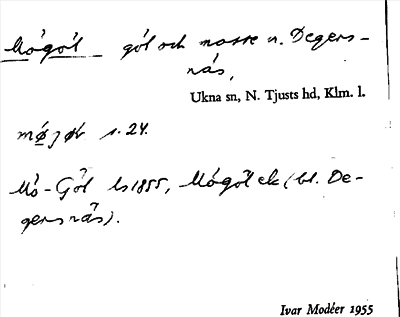 Mógól gól och mosse n. Degers-
nås,
Ukna sn, N. Tjusts hd, Klm. l.
s. 24.
Mó-Gól ls 1855, Mógöl ek (bl. De-
gersnäs).
Ivar Modéer 1955